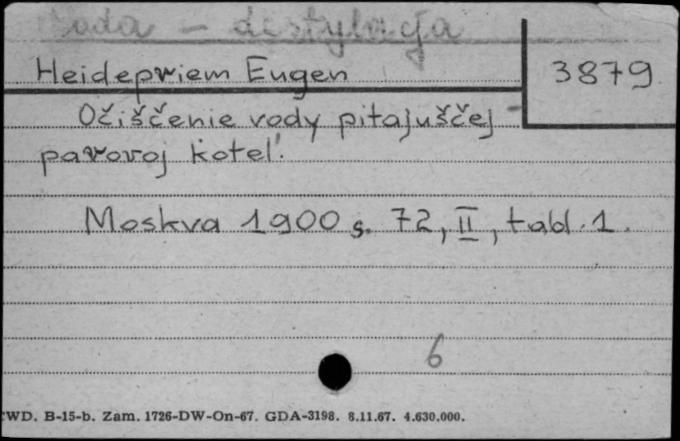 Woda - destylacja
Heidepriem Eugen
3879
Očiščenie vody pitajuščej
parovoj kotel'.
Moskva 1900 s. 72, II, tabl. 1.
6
WD. B-15-b. Zam. 1726-DW-On-67. GDA-3198. 8.11.67. 4.630.000.